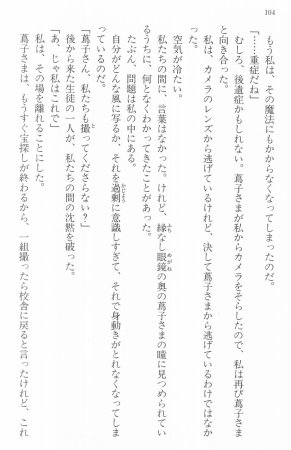 104
もう私は、その魔法にもかからなくなってしまったのだ。
「……重症だね」
むしろ、後遺症かもしれない。蔦子さまが私からカメラをそらしたので、私は再び蔦子さま
と向き合った。
私は、カメラのレンズから逃げているけれど、決して蔦子さまから逃げているわけではなか
った。
空気が冷たい。
私たちの間に、言葉はなかった。けれど、縁なし眼鏡の奥の蔦子さまの瞳に見つめられてい
るうちに、何となくわかってきたことがあった。
たぶん、問題は私の中にある。
自分がどんな風に写るか、それを過剰に意識しすぎて、それで身動きがとれなくなってしま
っているのだ。
「蔦子さん、私たちも撮ってくださらない？」
後から来た生徒の一人が、私たちの間の沈黙を破った。
「あ、じゃ私はこれで」
私は、その場を離れることにした。
蔦子さまは、もうすぐ宝探しが終わるから、一組撮ったら校舎に戻ると言ったけれど、これ